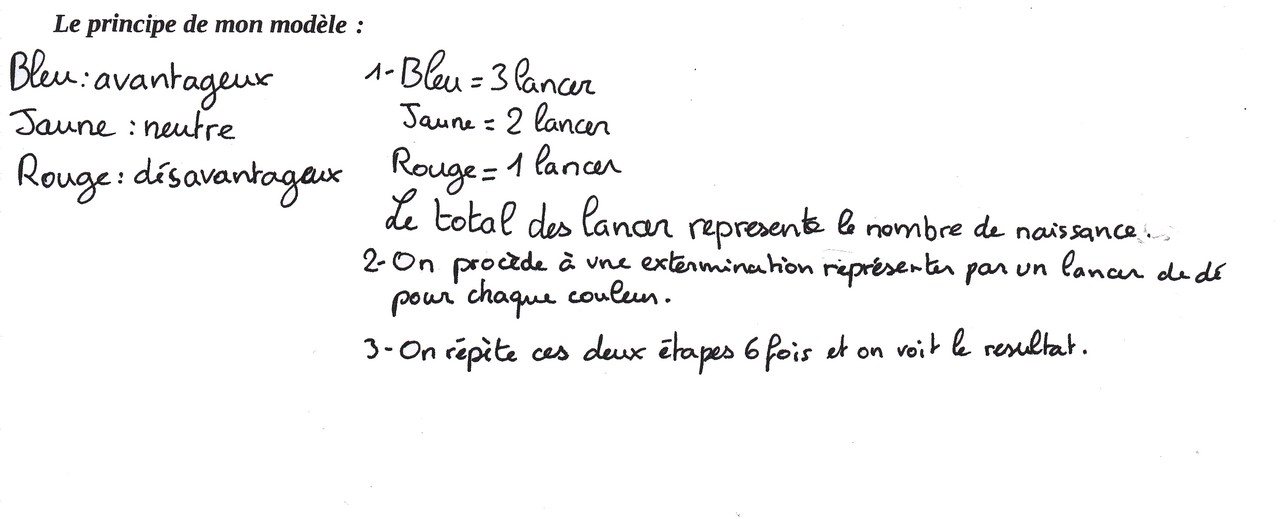 Le principe de mon modèle :
Bleu : avantageux
Jaune : neutre
Rouge : désavantageux
1- Bleu = 3 lancer
Jaune = 2 lancer
Rouge = 1 lancer
Le total des lancer represente le nombre de naissance.
2- On procède à une extermination répresenter par un lancer de dé
pour chaque couleur.
3- On répète ces deux étapes 6 fois et on voit le resultat.